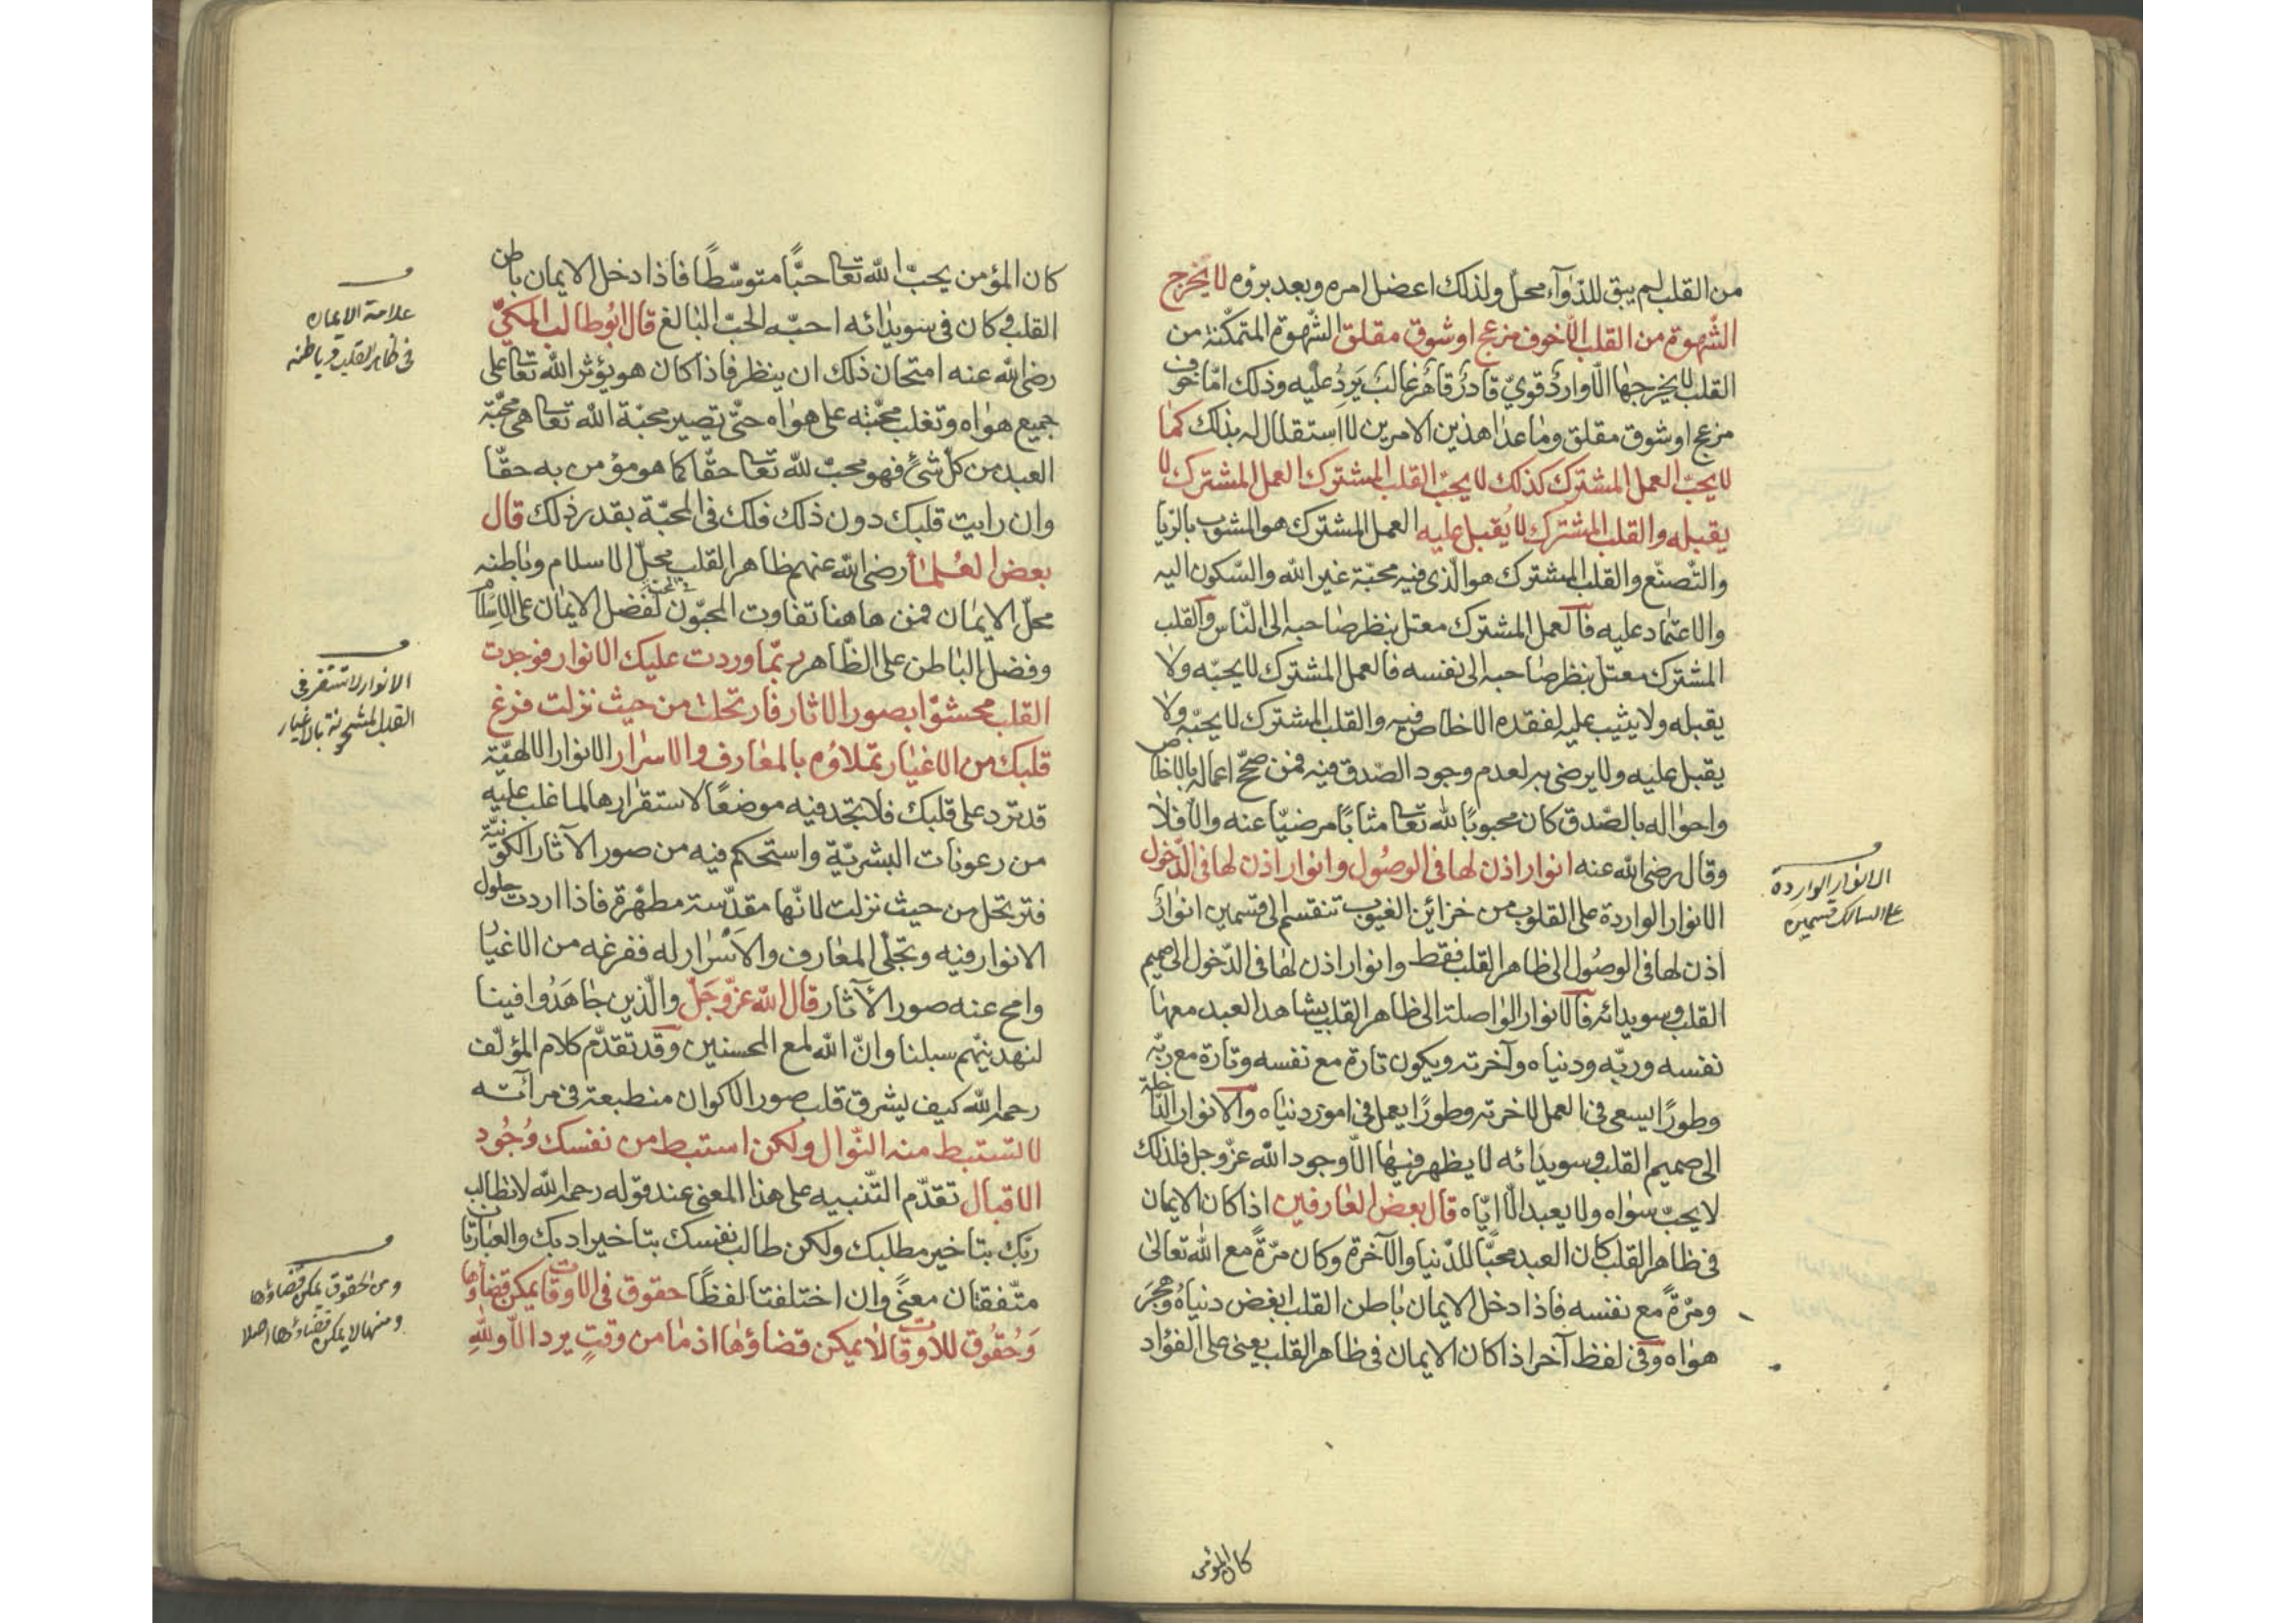 من القلب لم يبق للدّوآء محلّ ولذلك اعضل امره وبعد برؤه لا يخرج
الشّهوة من القلب الّا خوف مزعج او شوق مقلق الشّهوة المتمكّنة من
القلب لا يخرجها الّا واردٌ قويّ قادرٌ قاهرٌ غالبٌ يَرِدُ عليه وذلك امّا خوف
مزعج او شوق مقلق وما عدا هذين الامرين لا استقلال له بذلك كما
لا يحبّ العمل المشترك كذلك لا يحبّ القلب المشترك العمل المشترك لا
يقبله والقلب المشترك لا يُقبل عليه العمل المشترك هو المشوب بالرّيا
والتّصنّع والقلب المشترك هو الّذى فيه محبّة غير الله والسّكون اليه
والاعتماد عليه فالعمل المشترك معتل بنظر صاحبه الى النّاس والقلب
المشترك معتل بنظر صاحبه الى نفسه فالعمل المشترك لا يحبّه ولا
يقبله ولا يثيب عليه لفقده الاخلاص فيه والقلب المشترك لا يحبّه ولا
يقبل عليه ولا يرضى به لعدم وجود الصّدق فيه فمن صحّح اعماله بالاخلاص
واحواله بالصّدق كان محبوبًا لله تعا مثابًا مرضيّا عنه والّا فلا
وقال رضى الله عنه انوار اذن لها فى الوصُول وانوار اذن لها فى الدّخول
الانوار الواردة على القلوب من خزائن الغيوب تنقسم الى قسمين انوارٌ
اذن لها فى الوصُول الى ظاهر القلب فقط وانوار اذن لها فى الدّخول الى صميم
القلب وسويدائه فالانوار الواصلة الى ظاهر القلب يشاهد العبد معها
نفسه وربّه ودنياه وآخرته ويكون تارة مع نفسه وتارة مع ربّه
وطورًا يسعى فى العمل لاخرته وطورًا يعمل فى امور دنياه والانوار الدّاخلة
الى صميم القلب وسويدائه لا يظهر فيها الّا وجود الله عزّ وجل فلذلك
لا يحبّ سواه ولا يعبد الّا ايّاه قال بعض العارفين اذا كان الايمان
فى ظاهر القلب كان العبد محبًّا للدّنيا والآخرة وكان مرّةً مع الله تعالى
ومرّةً مع نفسه فاذا دخل الايمان باطن القلب ابغض دنياهُ وهجَرَ
هواه وفى لفظ آخر اذا كان الايمان فى ظاهر القلب يعنى على الفؤاد
الانوار الواردة
على السالك قسمين
كان المؤمن
كان المؤمن يحبّ الله تعا حبًّا متوسّطًا فاذا دخل الايمان باطن
القلب فكان فى سويدائه احبّه الحبّ البالغ قال ابوُ طالب المكىّ
رضى الله عنه امتحان ذلك ان ينظر فاذا كان هو يؤثر الله تعا على
جميع هواه وتغلب محبّته على هواه حتّى تصير محبّة الله تعا هى محبّة
العبد من كلّ شئ فهو محبّ لله تعا حقّا كما هو مؤمن به حقّا
وان رايت قلبك دون ذلك فلك فى المحبّة بقدر ذلك قال
بعض العُلماء رضى الله عنهم ظاهر القلب محلّ الاسلام وباطنه
محلّ الايمان فمن هاهنا تفاوت المحبّون فى المحبة لفضل الايمان على الاسلام
وفضل الباطن على الظّاهر ربّما وردت عليك الانوار فوجدت
القلب محشوّا بصور الاثار فارتحلت من حيث نزلت فرغ
قلبك من الاغيار تملاؤه بالمعارف والاسرار الانوار الالهيّة
قد ترد على قلبك فلا تجد فيه موضعًا لاستقرارها لما غلب عليه
من رعونات البشريّة واستحكم فيه من صور الآثار الكونيّة
فترتحل من حيث نزلت لانّها مقدّسة مطهّرة فاذا اردت حلول
الانوار فيه وتجلّى المعارف والاسْرار له ففرغه من الاغيار
وامح عنه صور الآثار قال الله عزّ وَجَلّ والّذين جاهَدُوا فينا
لنهدينّهم سبلنا وانّ الله لمع المحسنين وقد تقدّم كلام المؤلّف
رحمه الله كيف يشرق قلب صور الاكوان منطبعة فى مرآته
لا تستبط منه النّوال ولكن استبط من نفسك وُجُود
الاقبال تقدّم التّنبيه على هذا المعنى عند قوله رحمه الله لا تطالب
ربّك بتاخير مطلبك ولكن طالب نفسك بتاخير ادبك والعبارتان
متّفقتان معنًى وان اختلفتا لفظًا حقوق فى الاوقات يمكن قضاؤها
وَحُقُوق للاوقات لا يمكن قضاؤها اذ ما من وقتٍ يرد الّا ولله
علامة الايمان
فى ظاهر القلب وباطنه
الانوار لا تستقر فى
القلب المشحونة بالاغيار
ومن الحقوق يمكن قضاؤها
ومنها لا يمكن قضاؤها اصلا